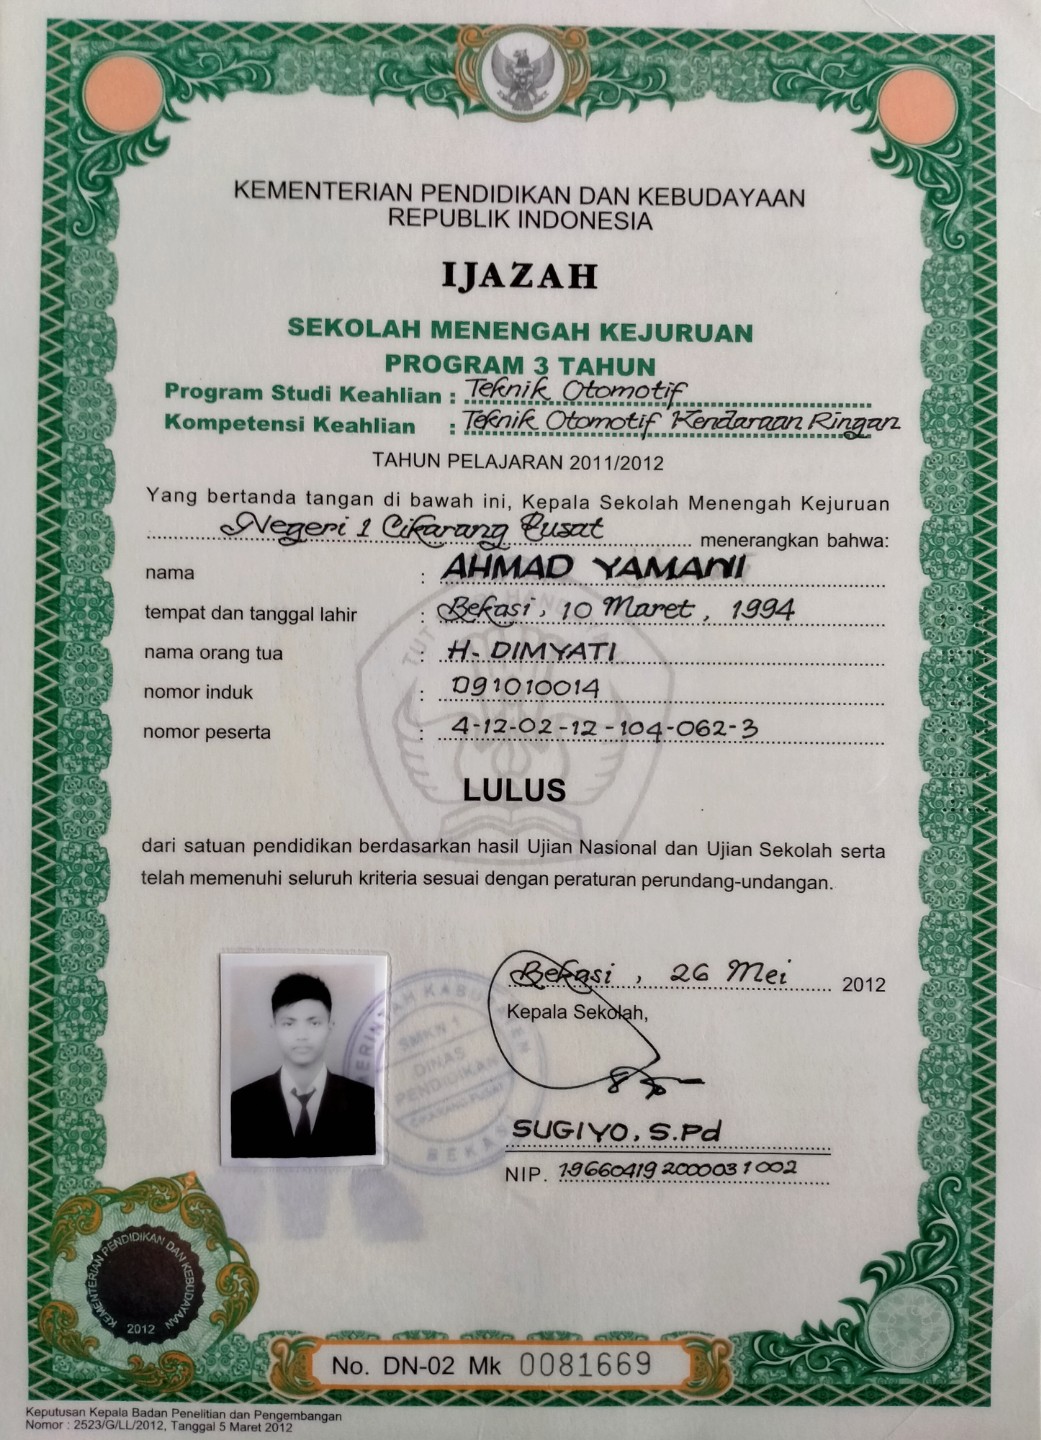 KEMENTERIAN PENDIDIKAN DAN KEBUDAYAAN
REPUBLIK INDONESIA
IJAZAH
SEKOLAH MENENGAH KEJURUAN
PROGRAM 3 TAHUN
Program Studi Keahlian : Teknik Otomotif
Kompetensi Keahlian : Teknik Otomotif Kendaraan Ringan
TAHUN PELAJARAN 2011/2012
Yang bertanda tangan di bawah ini, Kepala Sekolah Menengah Kejuruan
Negeri 1 Cikarang Pusat menerangkan bahwa:
nama : AHMAD YAMANI
tempat dan tanggal lahir : Bekasi, 10 Maret, 1994
nama orang tua : H. DIMYATI
nomor induk : 091010014
nomor peserta : 4-12-02-12-104-062-3
LULUS
dari satuan pendidikan berdasarkan hasil Ujian Nasional dan Ujian Sekolah serta
telah memenuhi seluruh kriteria sesuai dengan peraturan perundang-undangan.
Bekasi, 26 Mei 2012
Kepala Sekolah,
SMKN 1
DINAS
PENDIDIKAN
CIKARANG PUSAT
BEKASI
SUGIYO, S.Pd
NIP. 19660419 200003 1 002
KEMENTERIAN PENDIDIKAN DAN KEBUDAYAAN
2012
No. DN-02 Mk 0081669
Keputusan Kepala Badan Penelitian dan Pengembangan
Nomor : 2523/G/LL/2012, Tanggal 5 Maret 2012